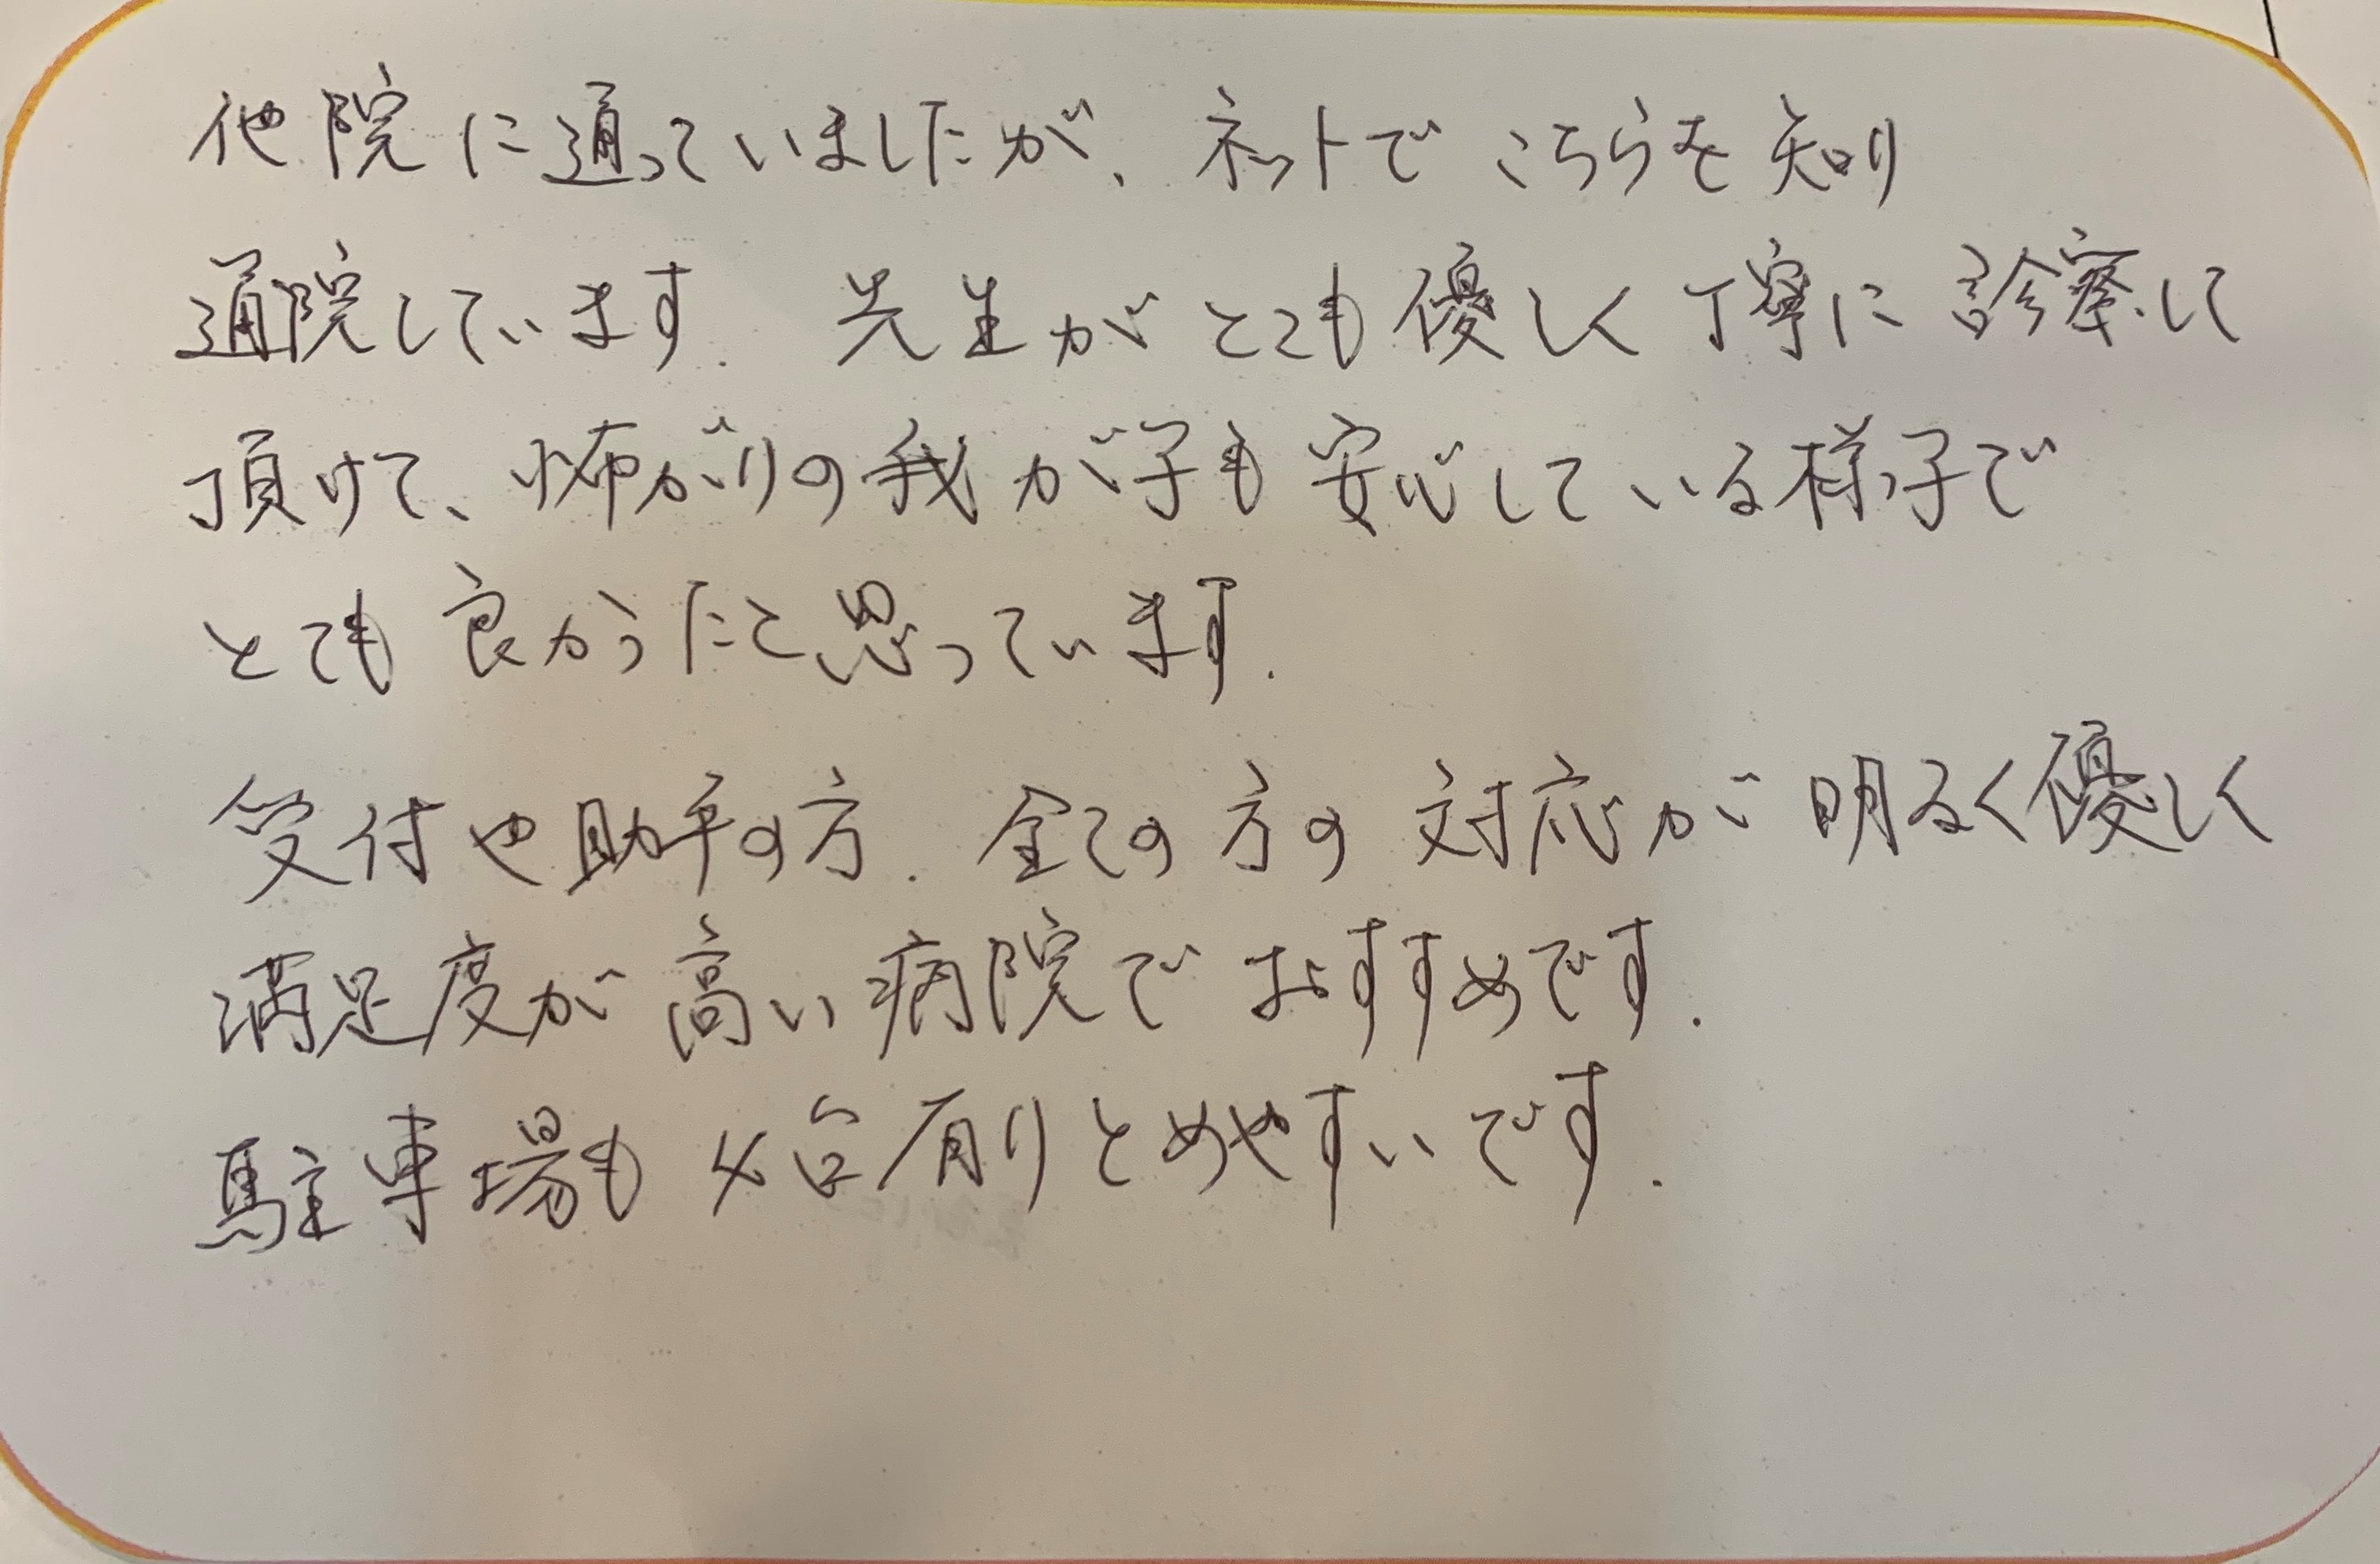 他院に通っていましたが、ネットでこちらを知り
通院しています。先生がとても優しく丁寧に診察して
頂けて、怖がりの我が子も安心している様子で
とても良かったと思っています。
受付や助手の方、全ての方の対応が明るく優しく
満足度が高い病院でおすすめです。
駐車場も4台有りとめやすいです。